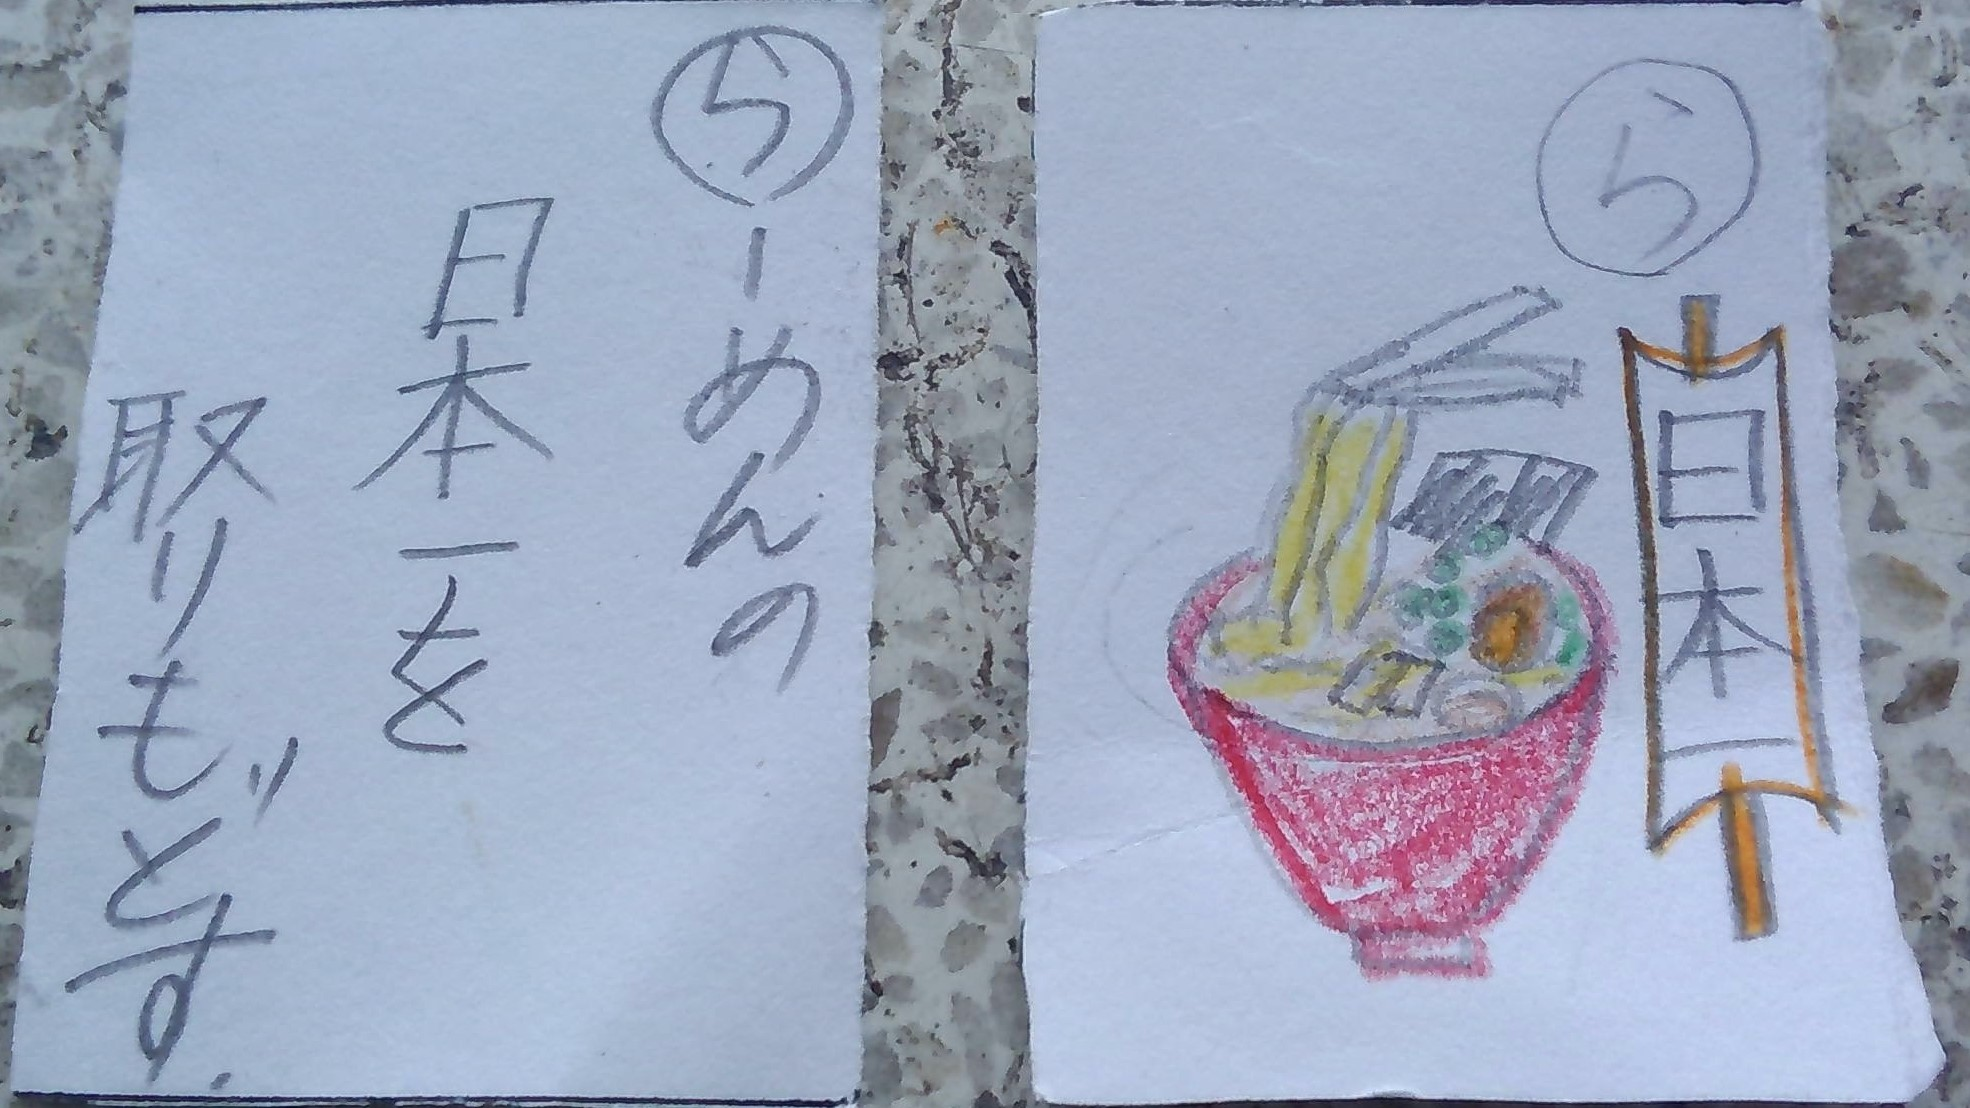 らーめんの
日本一を
取りもどす.
ら
日本一